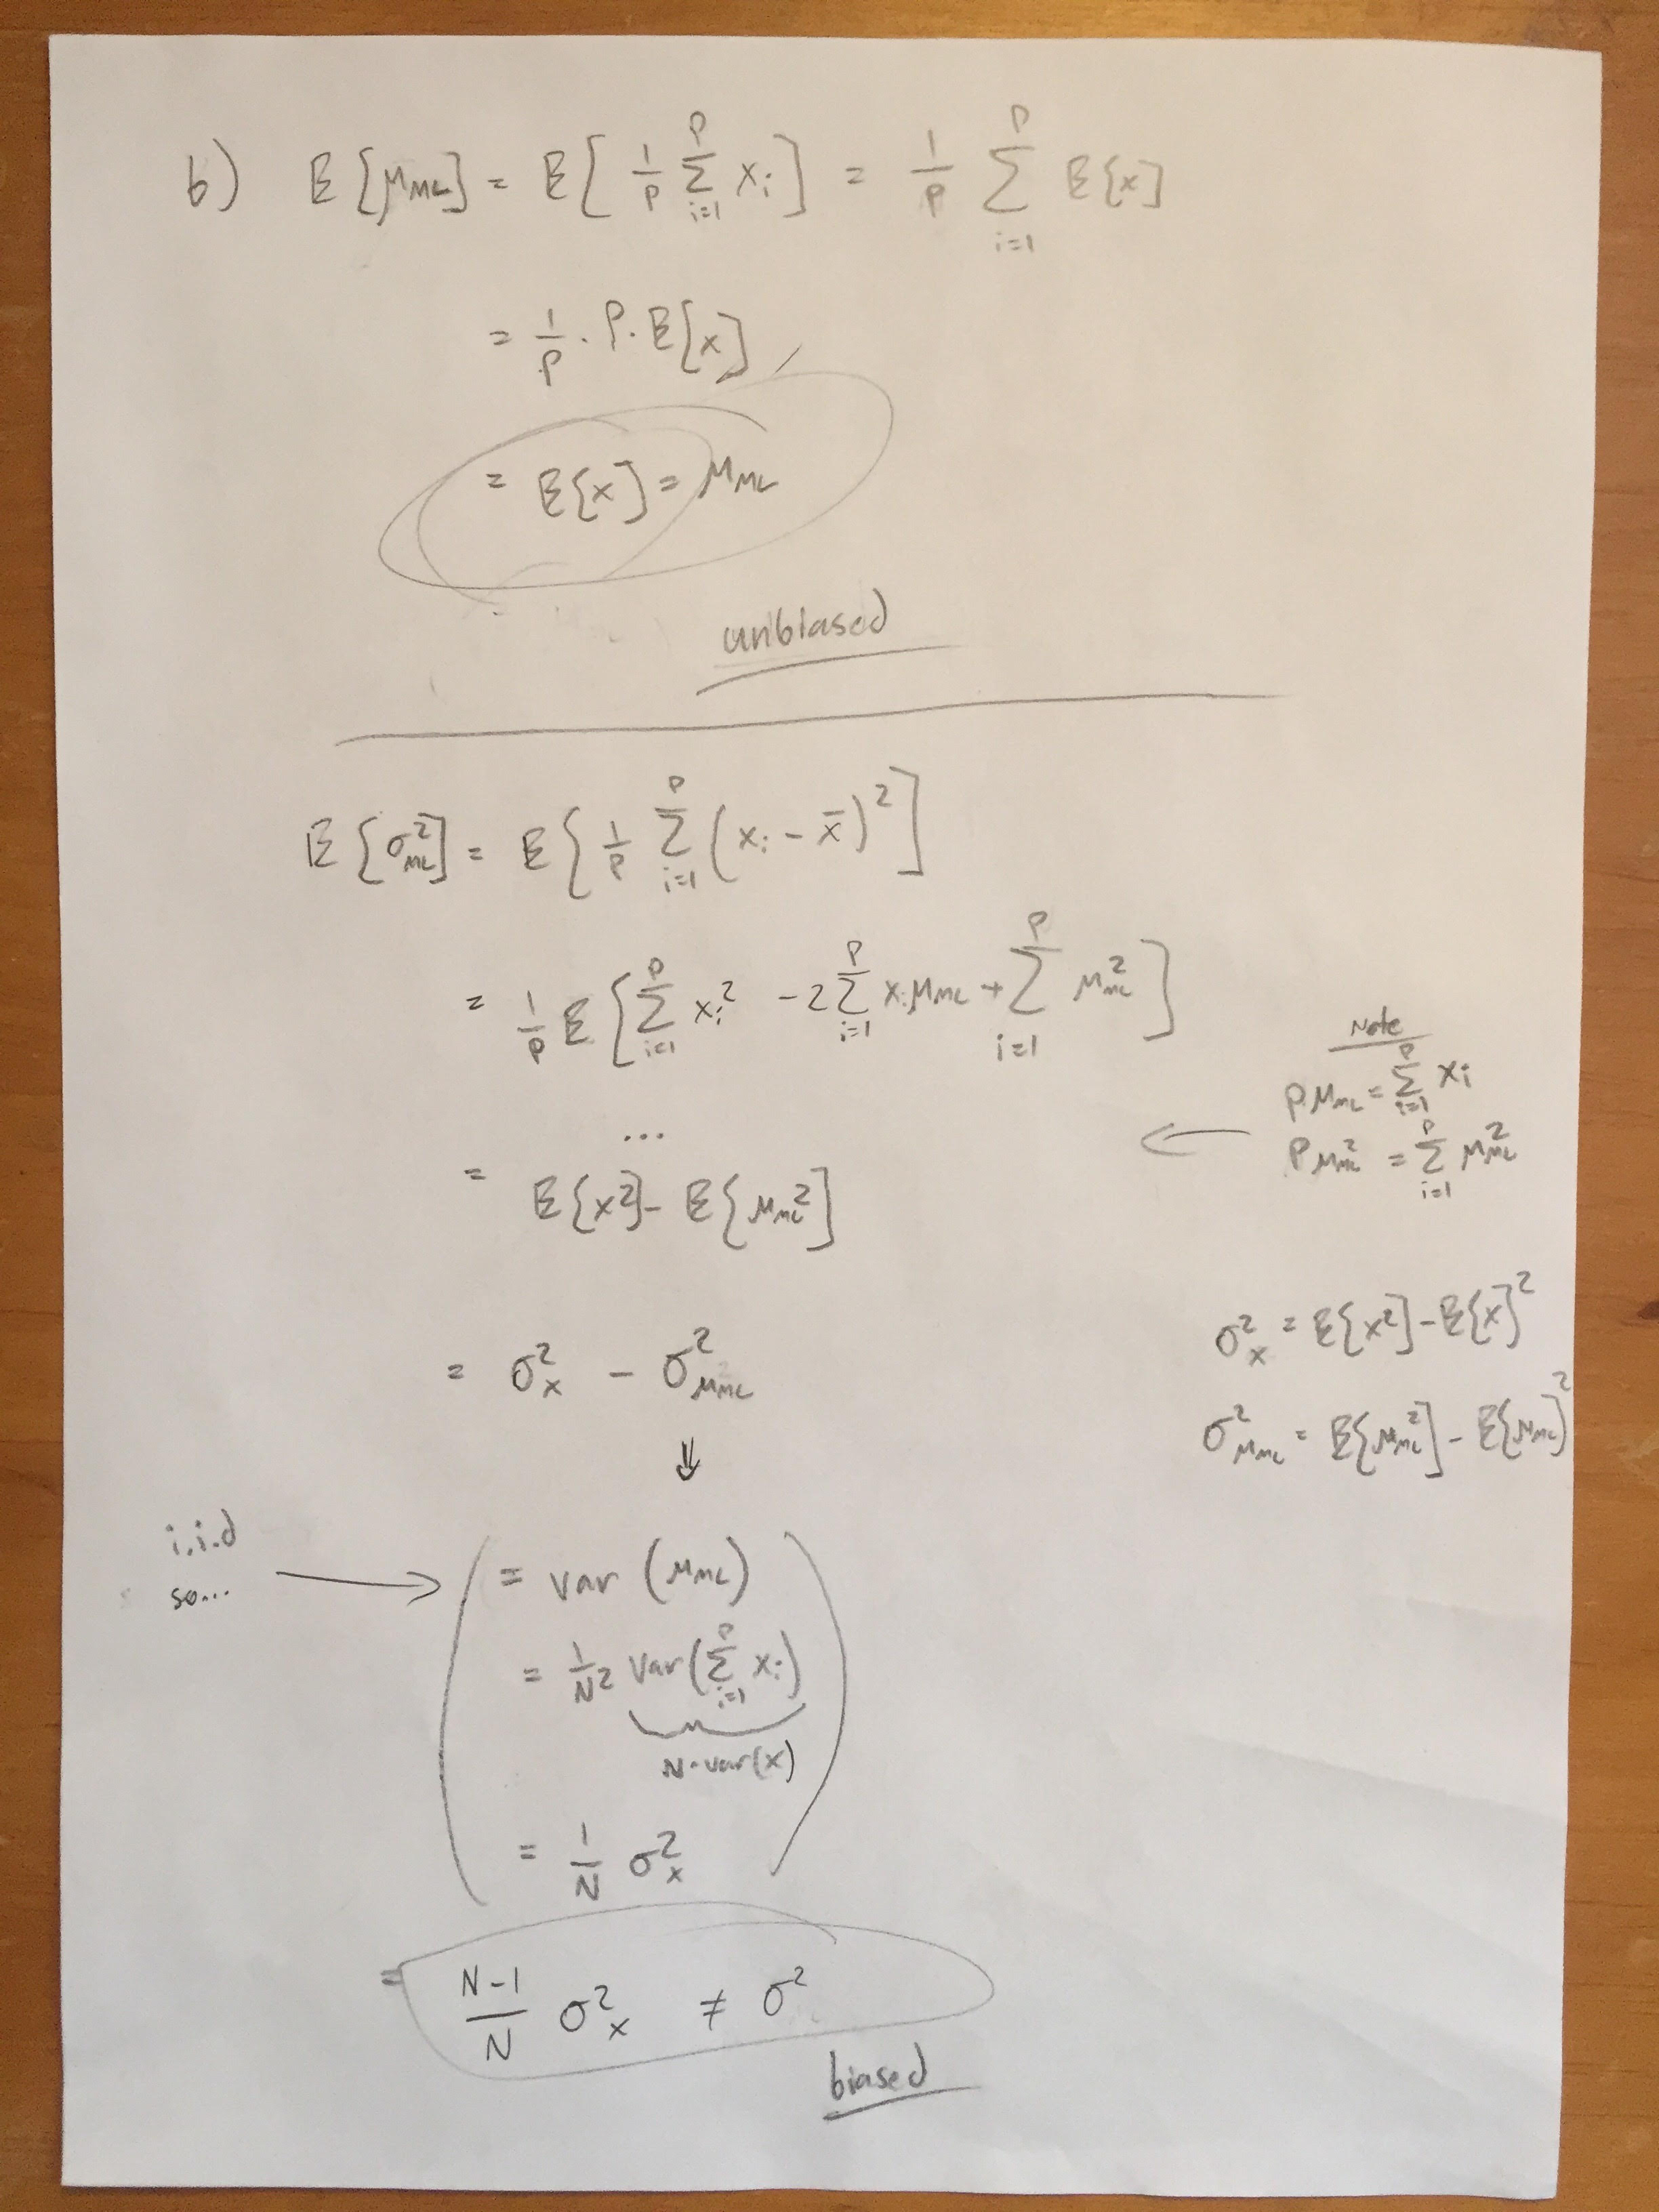 b) E[μ_ML] = E[ 1/P Σ_{i=1}^{P} x_i ] = 1/P Σ_{i=1}^{P} E[x]
= 1/P · P · E[x]
= E[x] = μ_ML
unbiased
E[σ²_ML] = E[ 1/P Σ_{i=1}^{P} (x_i - x̄)² ]
= 1/P E[ Σ_{i=1}^{P} x_i² - 2 Σ_{i=1}^{P} x_i μ_ML + Σ_{i=1}^{P} μ²_ML ]
Note
P μ_ML = Σ_{i=1}^{P} x_i
...
← P μ²_ML = Σ_{i=1}^{P} μ²_ML
= E[x²] - E[μ_ML²]
σ²_x = E[x²] - E[x]²
= σ²_x - σ²_{μ_ML}
σ²_{μ_ML} = E[μ_ML²] - E[μ_ML]²
⇓
i.i.d
so... →
= var (μ_ML)
= 1/N² var( Σ_{i=1}^{P} x_i )
N·var(x)
= 1/N σ²_x
= N-1/N σ²_x ≠ σ²
biased